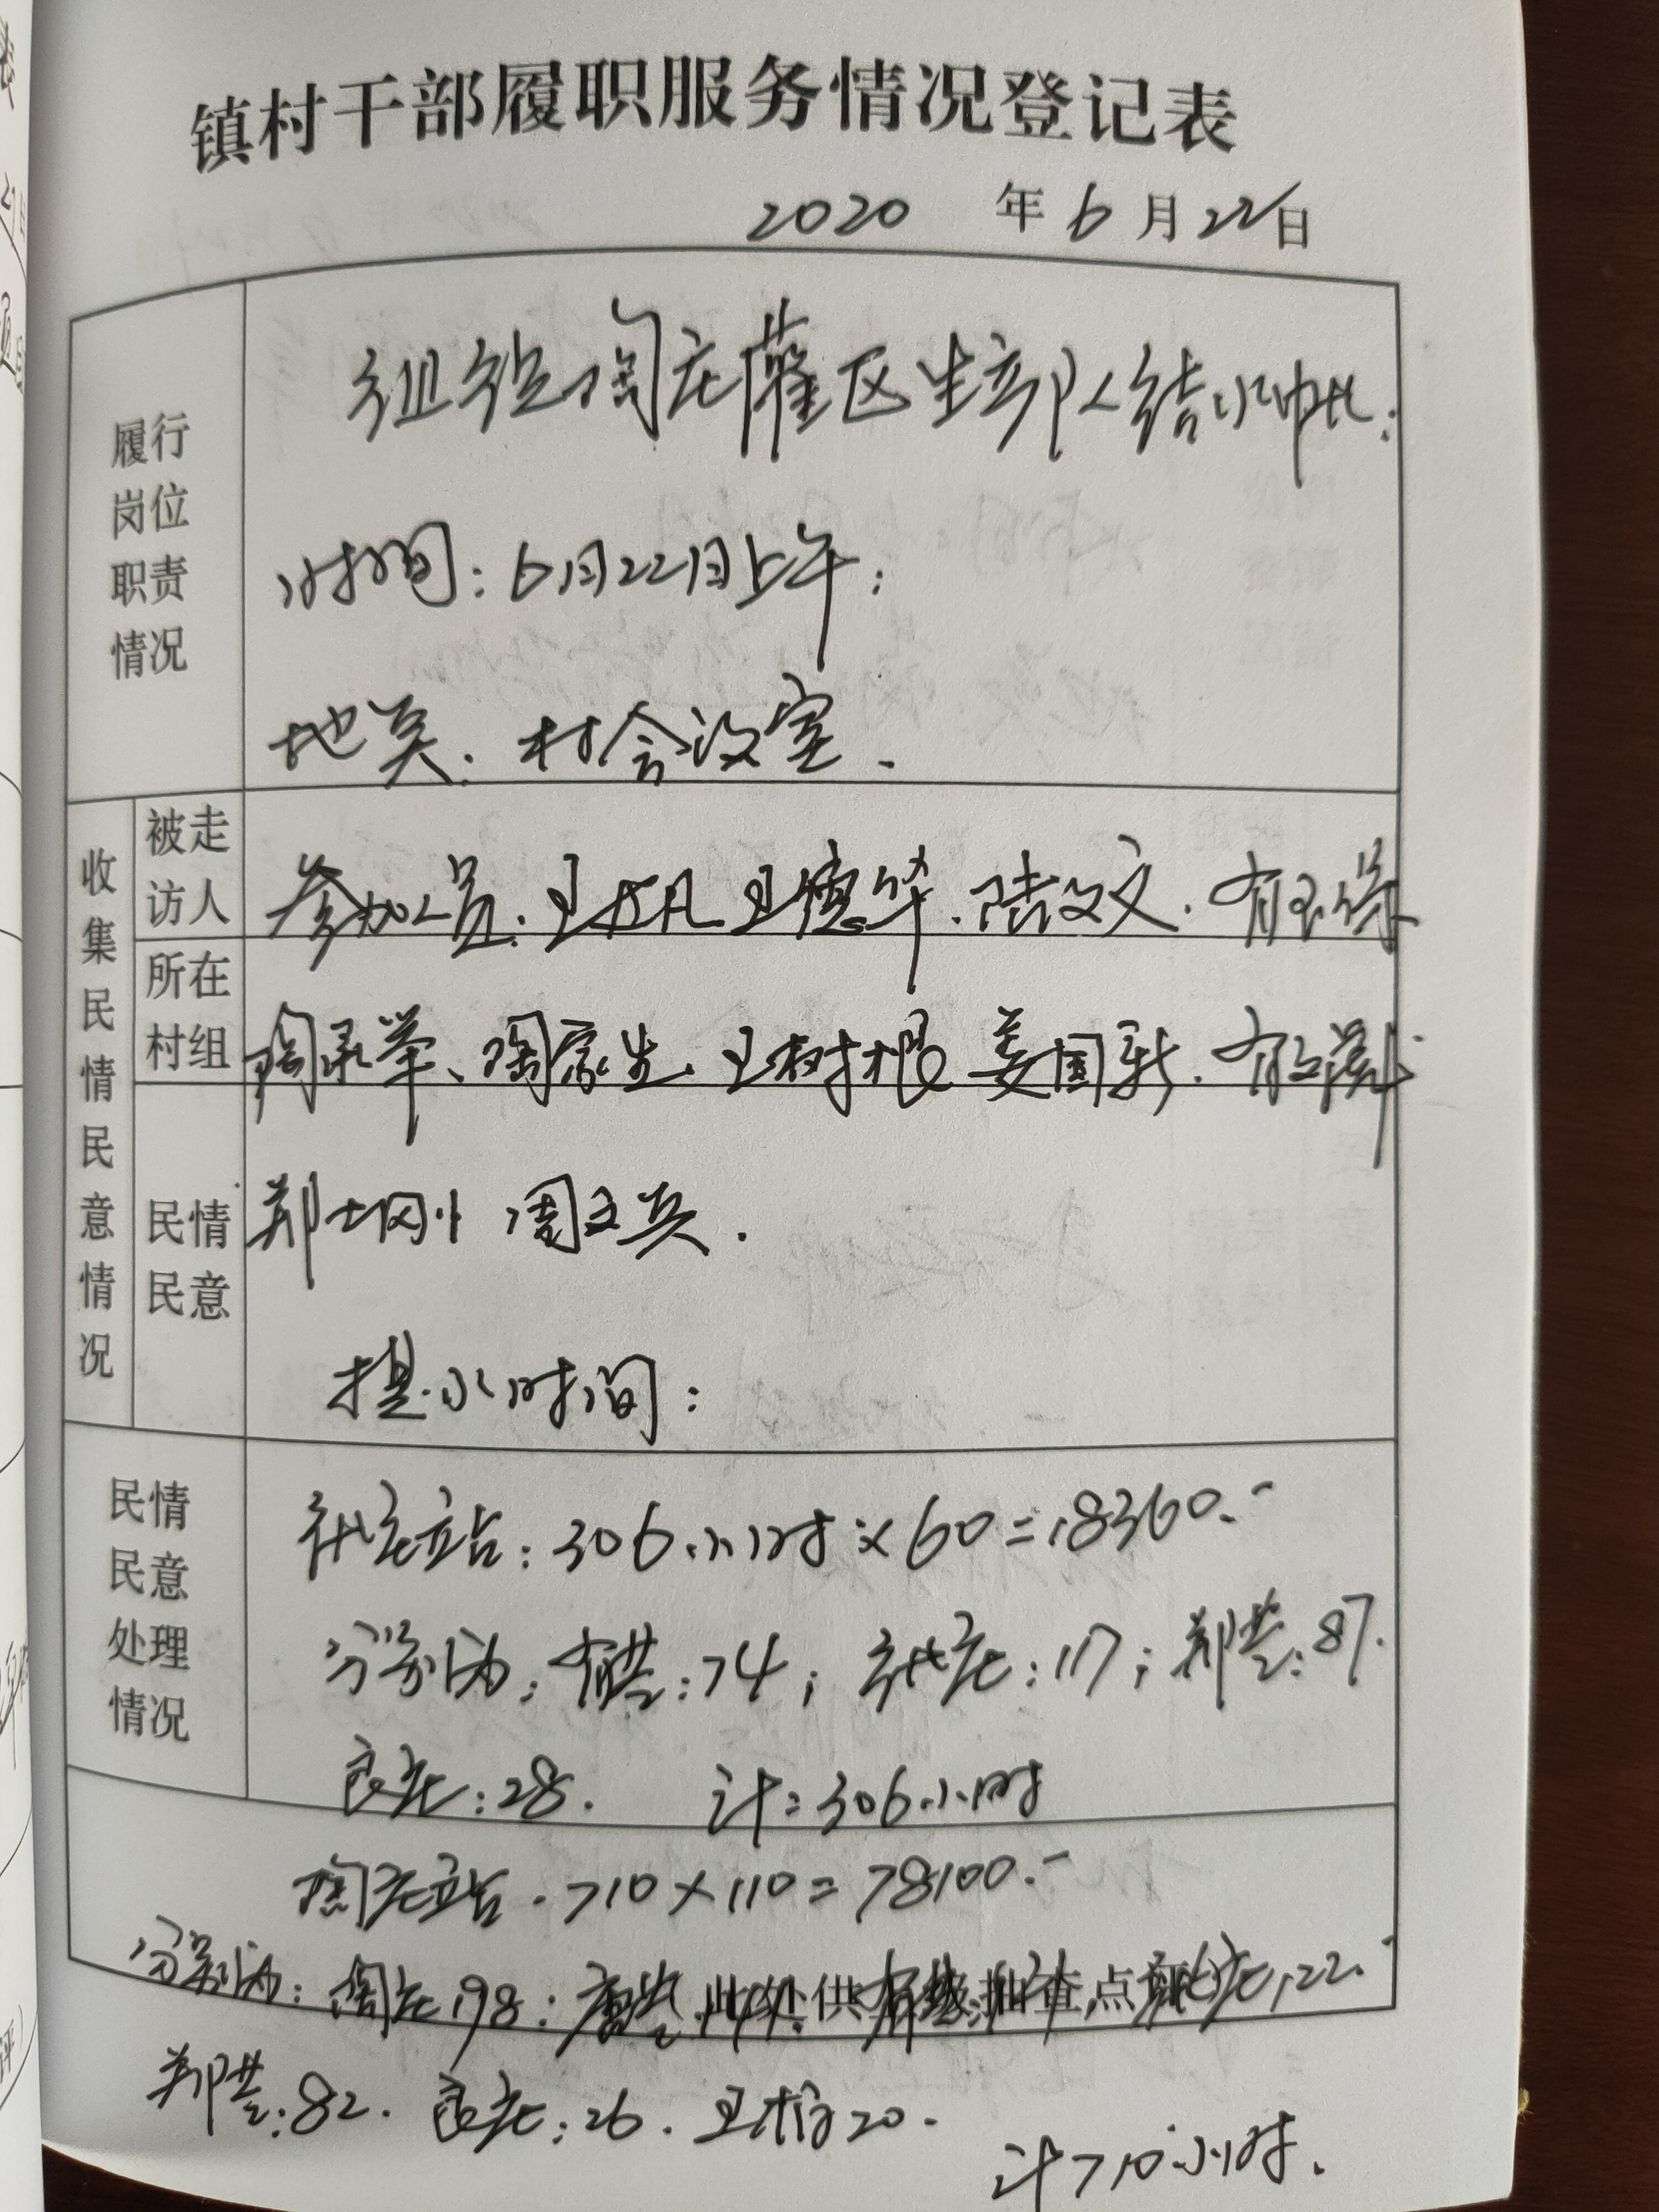 镇村干部履职服务情况登记表
2020 年 6 月 22 日
履行岗位职责情况
组织陶庄灌区生产队结水帐:
时间:6月22日上午;
地点:村会议室.
收集民情民意情况
被走访人
参加人员:王 王德华.陆文文.有玉保
所在村组
陶承举、陶家生.王树根 姜国新.有
民情民意
郑士刚 周文兵.
提水时间:
民情民意处理情况
站:306小时×60=18360.-
分别为: :74; 庄:117;郑芸:87.
良庄:28. 计:306小时
陶庄站.710×110=78100.-
分别为:陶庄198: 此处供 抽查点 庄122.
郑芸:82. 良庄:26. 王 20.
计710小时.